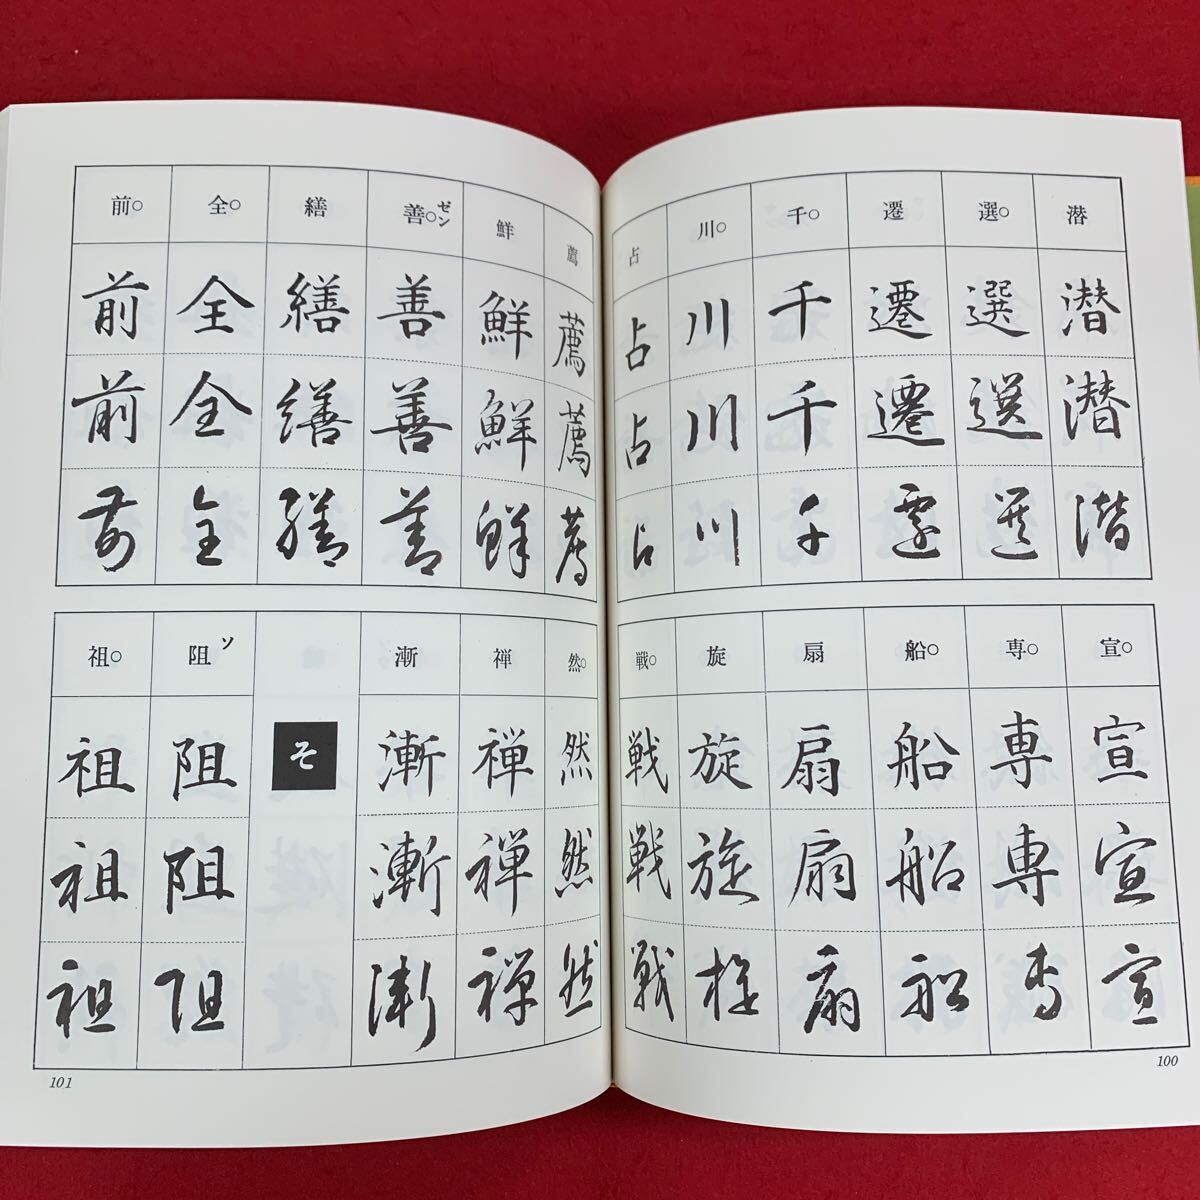 潜 潜 潜 潜
選○ 選 選 選
遷 遷 遷 遷
千○ 千 千 千
川○ 川 川 川
占 占 占 占
宣○ 宣 宣 宣
専○ 専 専 専
船○ 船 船 船
扇 扇 扇 扇
旋 旋 旋 旋
戦○ 戦 戦 戦
100
薦 薦 薦 薦
鮮 鮮 鮮 鮮
善○ゼン 善 善 善
繕 繕 繕 繕
全○ 全 全 全
前○ 前 前 前
然○ 然 然 然
禅 禅 禅 禅
漸 漸 漸 漸
そ
阻ソ 阻 阻 阻
祖○ 祖 祖 祖
101